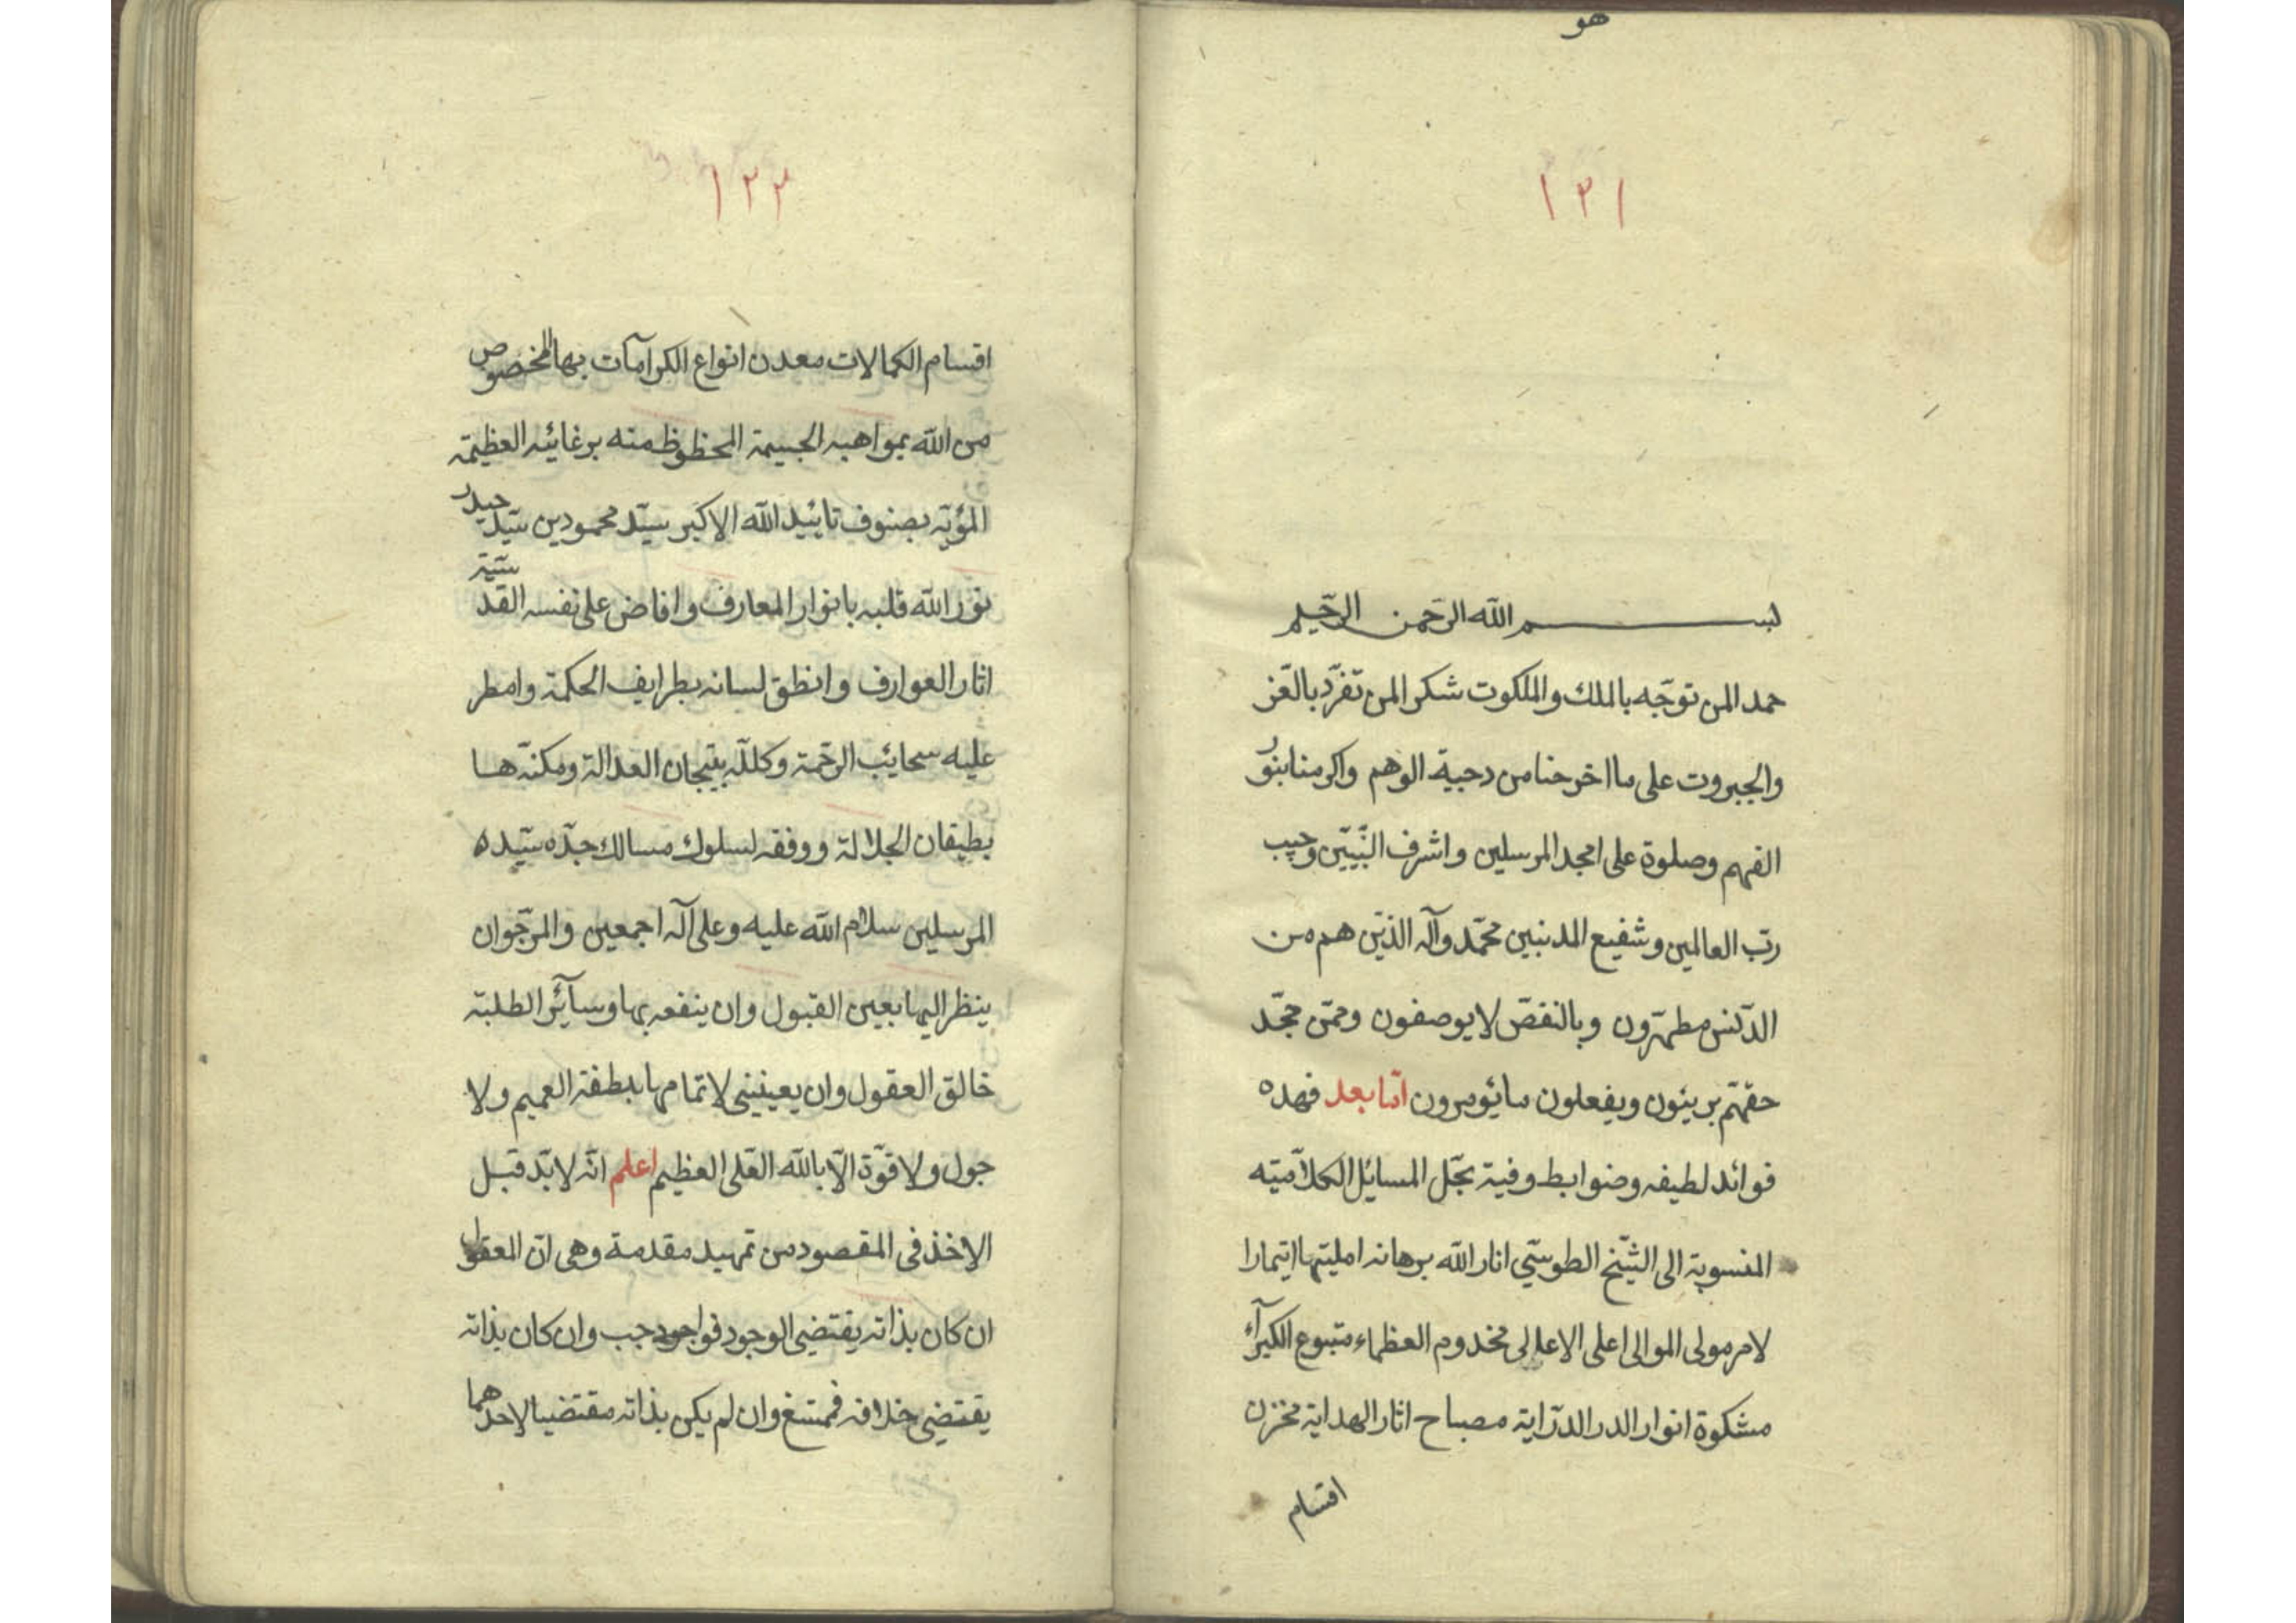 هو
١٢١
بسم الله الرحمن الرحيم
حمد المن توجّه بالملك والملكوت شكر المن تفرّد بالعّز
والجبروت على ما اخرجنا من دجية الوهم واكرمنا بنور
الفهم وصلوة على امجد المرسلين واشرف النّبيّين وحبيب
ربّ العالمين وشفيع المذنبين محمّد وآله الذيّن هم من
الدّنس مطهّرون وبالنقصّ لا يوصفون وممّن حجّد
حقهّم بريئون ويفعلون مايؤمرون امّا بعد فهذه
فوائد لطيفه وضوابط وفية بحّل المسايل الكلاّميّه
المنسوبة الى الشّيخ الطوسّي انار الله برهانه امليتها ايتمارا
لامر مولى الموالى اعلى الاعالى مخدوم العظماء متبوع الكبرآء
مشكوة انوار الدر الدّراية مصباح اثار الهداية مخزن
اقسام
١٢٢
اقسام الكمالات معدن انواع الكرامآت بها المخصوص
من الله بمواهبه الجسيمة المحظوظ منه برغائبه العظيمة
المؤيّد بصنوف تائيد الله الاكبر سيّد محمود بن سيّد حيدر
نوّر الله قلبه بانوار المعارف وافاض على نفسه القدسّية
اثار العوارف وانطق لسانه بطرايف الحكمة وامطر
عليه سحائب الرحّمة وكللّه بتيجان العدالة ومكنّه ها
بطيقان الجلالة ووفقه لسلوك مسالك جدّه سيّده
المرسلين سلام الله عليه وعلى آله اجمعين والمرجّوان
ينظر اليها بعين القبول وان ينفعه بها وسآئر الطلبّه
خالق العقول وان يعيننى لاتمامها بلطفه العميم ولا
حول ولا قوّة الاّ بالله العّلى العظيم اعلم انّه لابّد قبل
الاخذ فى المقصود من تمهيد مقدمة وهى انّ المعقول
ان كان بذاته يقتضى الوجود فواجب وان كان بذاته
يقتضى خلافه فممتنع وان لم يكن بذاته مقتضيا لاحدهما